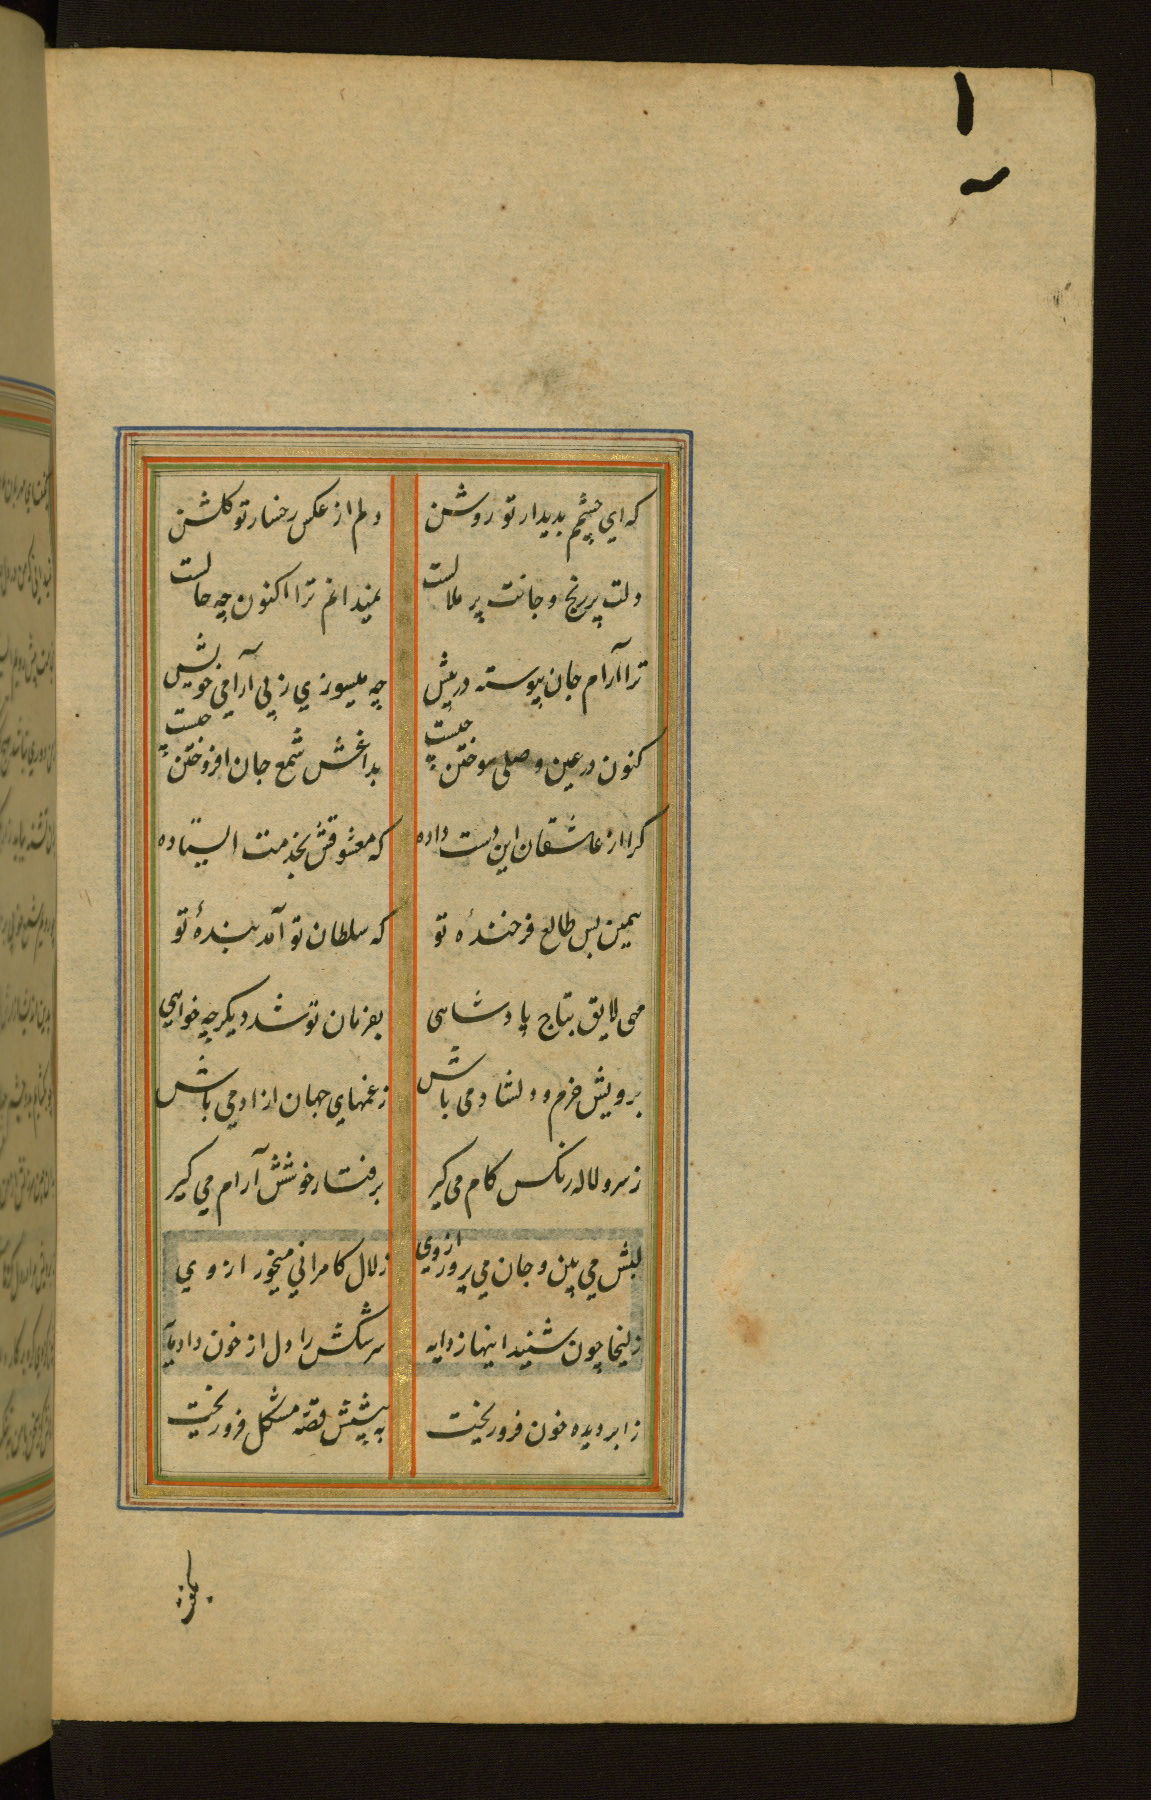 که ای چشمم بدیدار تو روشن دلم از عکس رخسار تو کلشن
دلت پر رنج و جانت پر ملالست نمیدانم ترا اکنون چه حالست
ترا آرام جان پیوسته در پیش چه میسوزی ز بی آرامی خویش
کنون در عین وصلی سوختن چیست بداغش شمع جان افروختن چیست
کرا از عاشقان این دست داده که معشوقش بخدمت ایستاده
همین بس طالع فرخندهٔ تو که سلطان تو آمد بندهٔ تو
مهی لایق بتاج پادشاهی بفرمان تو شد دیکر چه خواهی
برویش خرم و دلشاد می باش ز غمهای جهان ازاد می باش
ز سرو لاله رنکس کام می کیر برفتار خوشش آرام می کیر
لبش می بین و جان می پرور از وی زلال کامرانی میخور از وی
زلیخا چون شنید اینها ز دایه سرشکش را دل از خون داد مایه
ز ابر دیده خون فرو ریخت به پیشش قصه مشکل فرو ریخت
بگفت